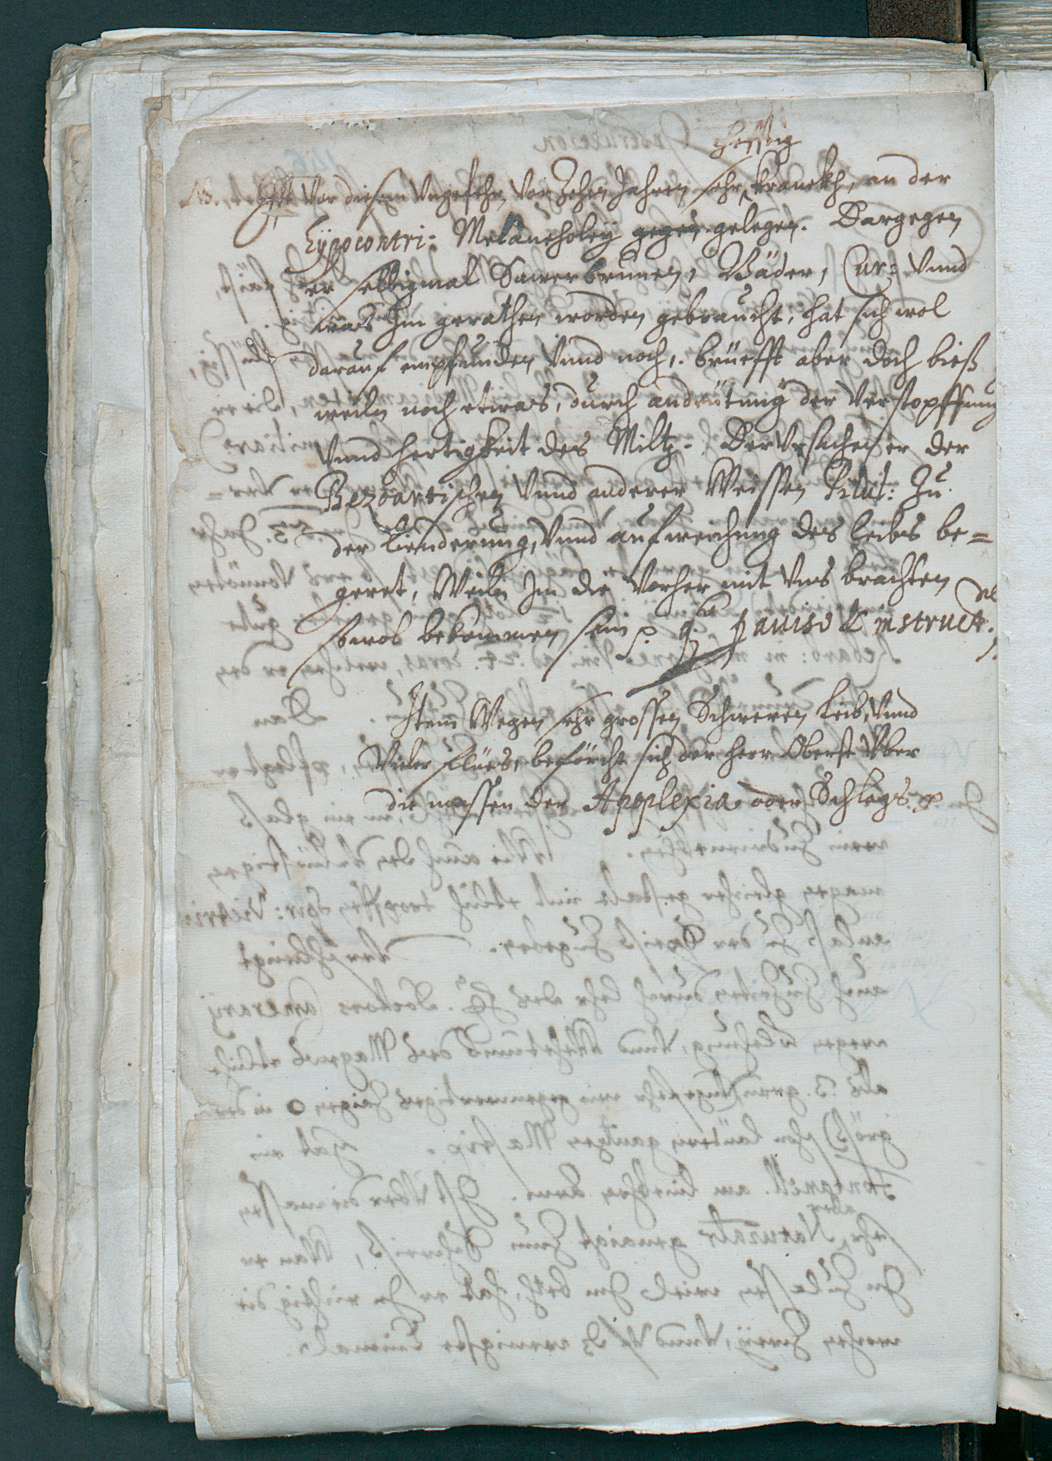 hefftig
NB. Ist Vor diesem Ungefehr Vor Zehen Jahren sehr kranckh, an der
Hÿpocontri: Melancholeÿ gegen gelegen. Dargegen
er selbigmal Sawerbrunen, Bäder, Cur: Vnnd
was Im gerathen worden gebraucht, hat sich wol
darauf empfunden Vnnd noch, brüefft aber doch bieß
weiln noch etwas, durch andeütung der Verstopffung
Vnnd hertigkeit des Miltz. Der Vrsachen er der
Bezoartischen Vnnd anderer Weissen Pulu: Zu
der Linderung, Vnnd aufweichung des Leibs be=
geret, Weiln Im die Vorher mit Vns brachten
bekommen sein p auiso & instruct.
Item Wegen sehr grossen Schweren Leib, Vnnd
Viler flüs, beförcht sich der herr Oberst Vber
die massen der Apoplexia oder Schlags. p